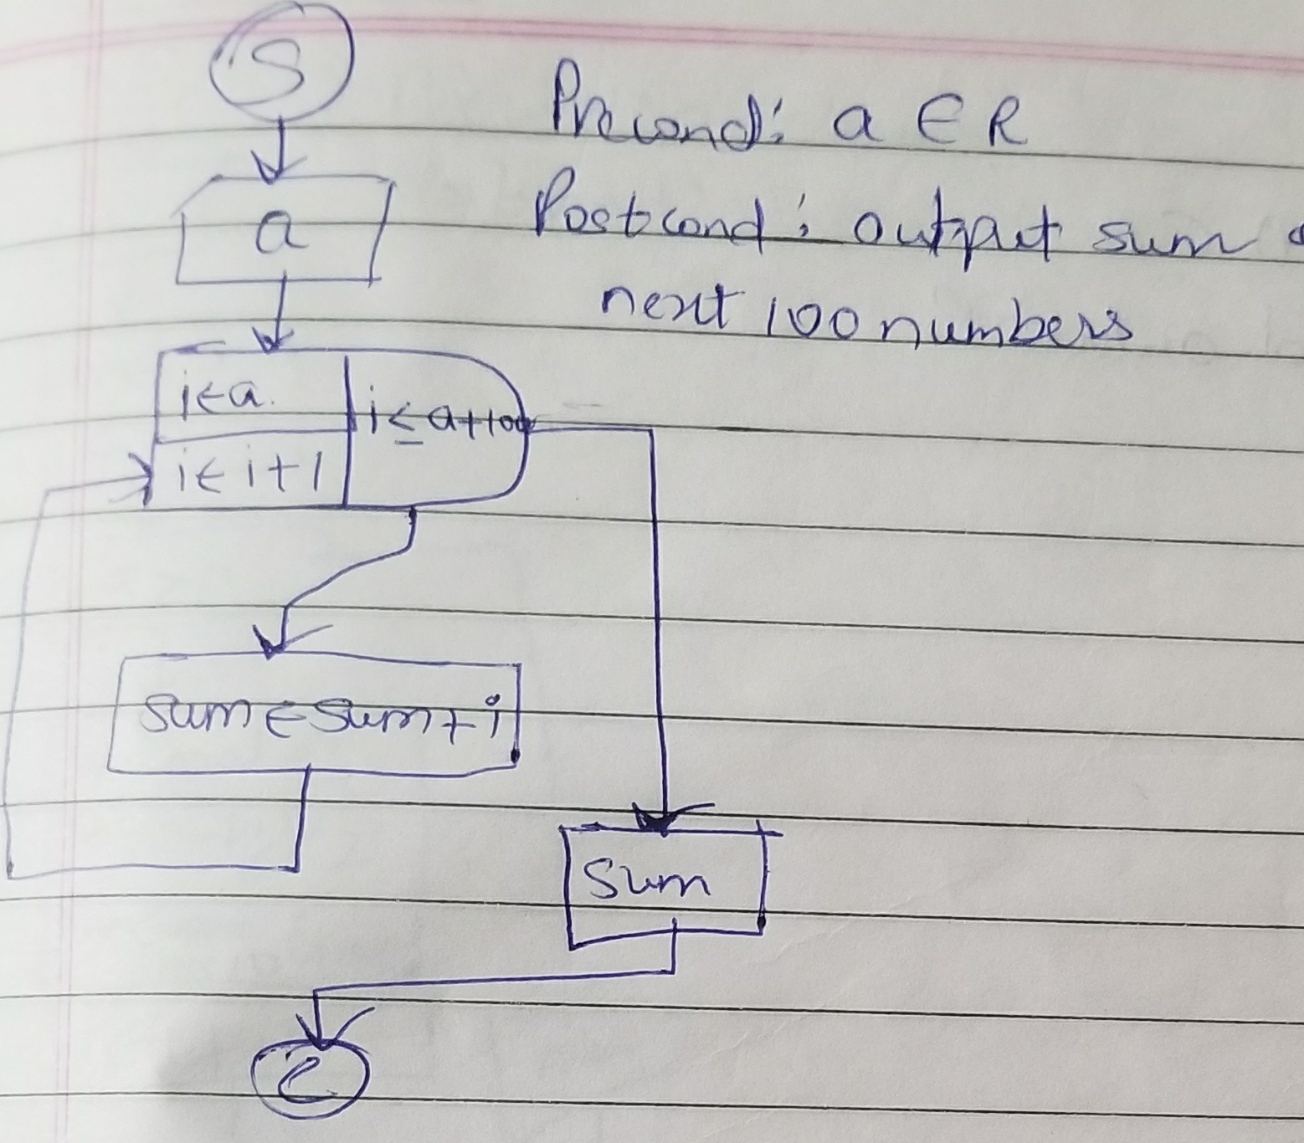 S
Precond: a ∈ R
a
Postcond: output sum
next 100 numbers
i←a.
i≤a+100
i←i+1
sum←sum+i
sum